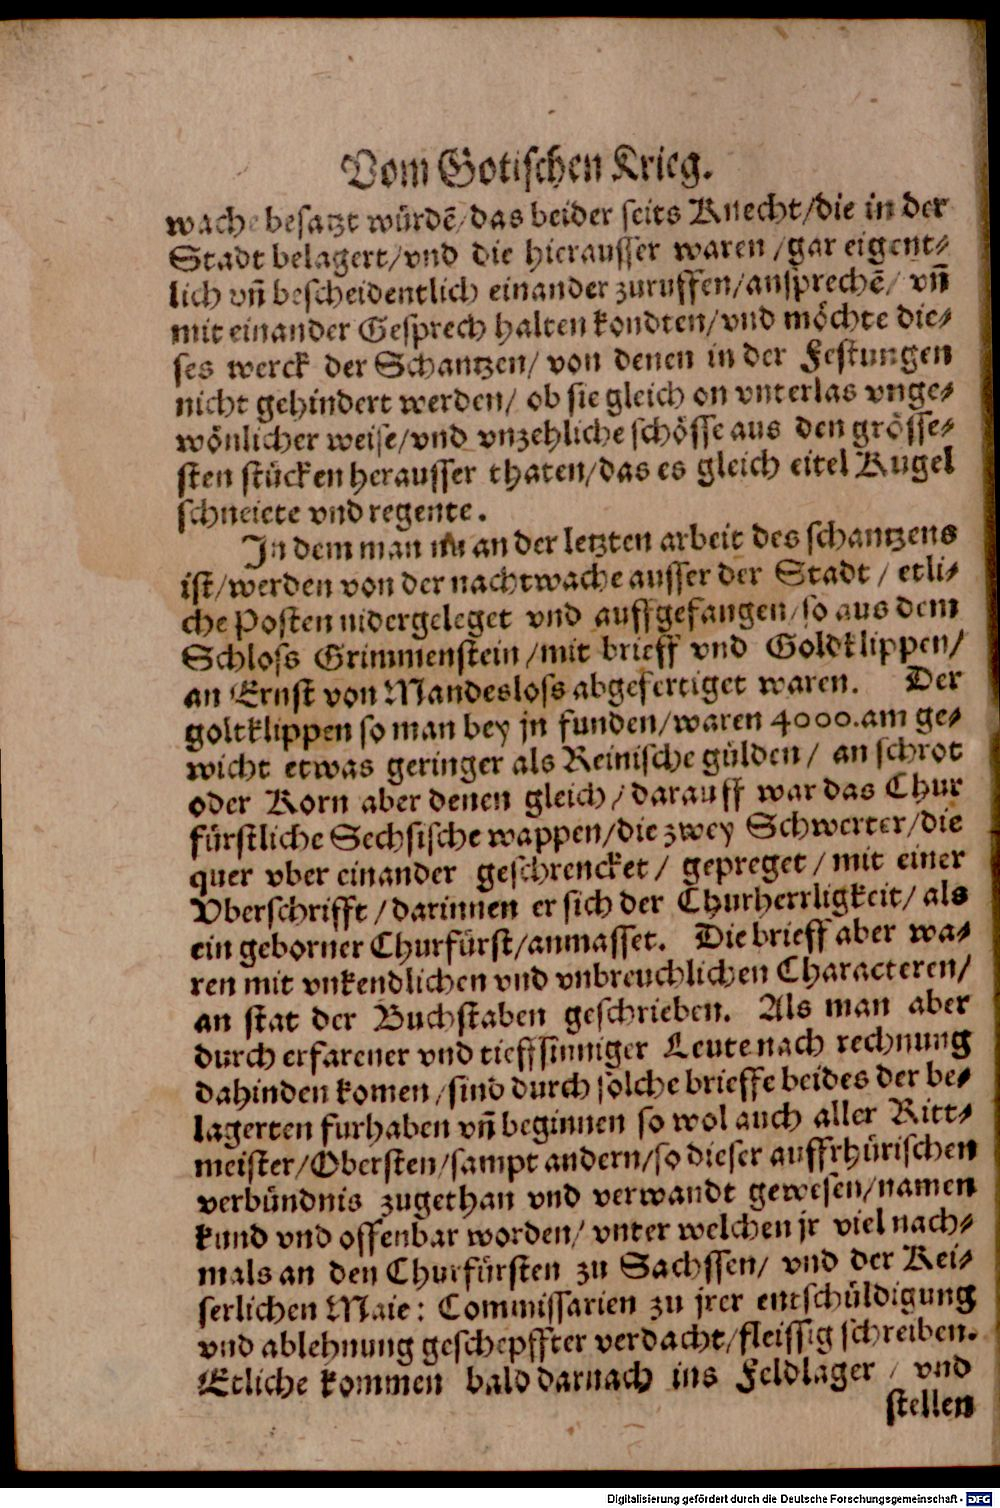 Vom Gotischen Krieg.
wache besatzt würdẽ/das beider seits Knecht/die in der
Stadt belagert/vnd die hierausser waren/gar eigent-
lich vñ bescheidentlich einander zuruffen/ansprechẽ/ vñ
mit einander Gesprech halten kondten/vnd möchte die-
ses werck der Schantzen/ von denen in der Festungen
nicht gehindert werden/ ob sie gleich on vnterlas vnge-
wönlicher weise/vnd vnzehliche schösse aus den grösse-
sten stücken herausser thaten/das es gleich eitel Kugel
schneiete vnd regente.
In dem man nu an der letzten arbeit des schantzens
ist/werden von der nachtwache ausser der Stadt / etli-
che Posten nidergeleget vnd auffgefangen/so aus dem
Schloss Grimmenstein/mit brieff vnd Goldklippen/
an Ernst von Mandesloss abgefertiget waren. Der
goltklippen so man bey jn funden/waren 4000.am ge-
wicht etwas geringer als Reinische gülden/ an schrot
oder Korn aber denen gleich/darauff war das Chur
fürstliche Sechsische wappen/die zwey Schwerter/die
quer vber einander geschrencket/ gepreget/mit einer
Vberschrifft/darinnen er sich der Churherrligkeit/ als
ein geborner Churfürst/anmasset. Die brieff aber wa-
ren mit vnkendlichen vnd vnbreuchlichen Characteren/
an stat der Buchstaben geschrieben. Als man aber
durch erfarener vnd tieffsinniger Leute nach rechnung
dahinden komen/sind durch solche brieffe beides der be-
lagerten furhaben vñ beginnen so wol auch aller Ritt-
meister/Obersten/sampt andern/so dieser auffrhürischen
verbündnis zugethan vnd verwandt gewesen/namen
kund vnd offenbar worden/ vnter welchen jr viel nach-
mals an den Churfürsten zu Sachssen/ vnd der Kei-
serlichen Maie: Commissarien zu jrer entschüldigung
vnd ablehnung geschepffter verdacht/fleissig schreiben.
Etliche kommen bald darnach ins Feldlager / vnd
stellen
Digitalisierung gefördert durch die Deutsche Forschungsgemeinschaft - DFG